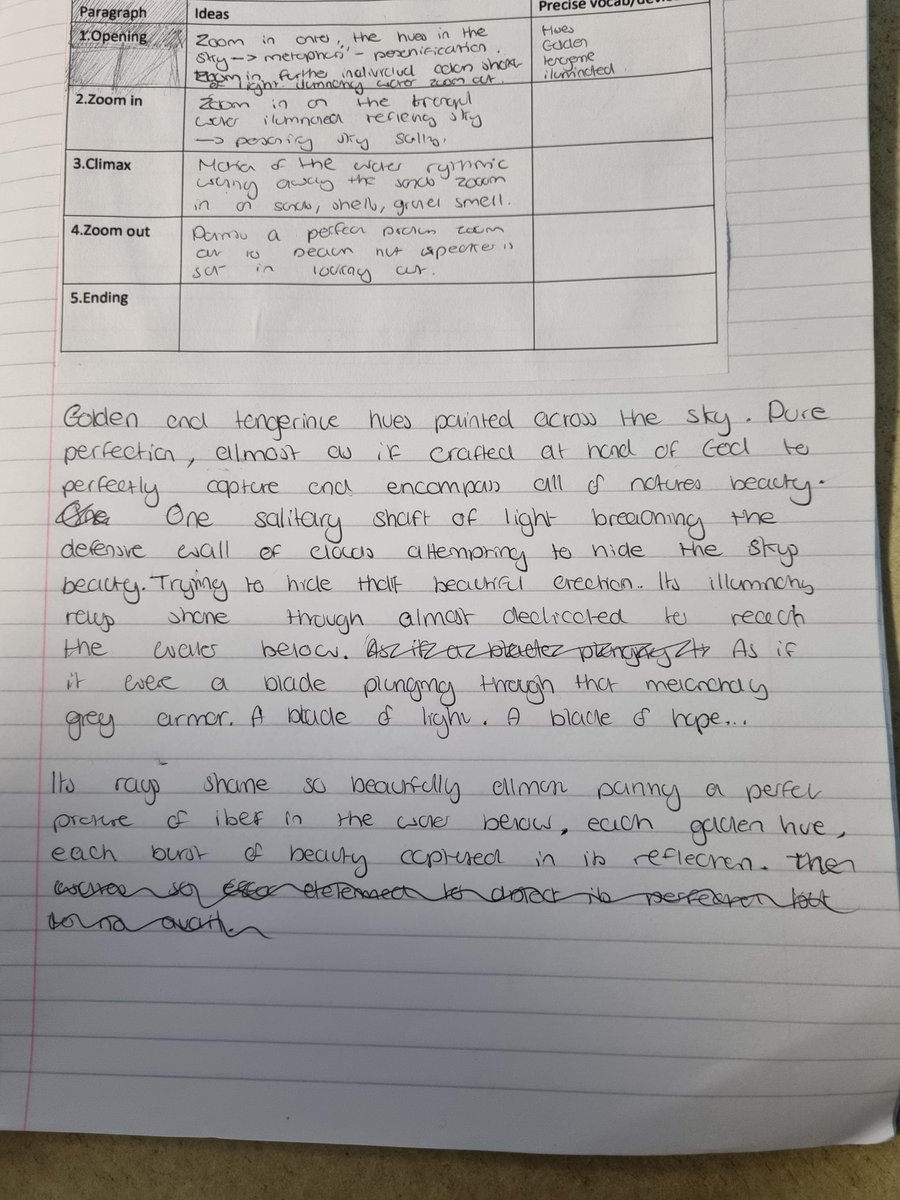 Paragraph
Ideas
Precise vocab/devic
1.Opening
Zoom in onto, the hues in the
sky → metaphor - personification.
Zoom in further individual golden shaft
of light. illuminating water zoom out.
Hues
Golden
tengerine
iluminated
2.Zoom in
Zoom in on the tranquil
water iluminated reflecting sky
→ personify sky
3.Climax
Motion of the water rythmic
away the sands zoom
in on sands, shells, gravel smell.
4.Zoom out
a perfect picture zoom
out to beach hut
sat in looking out.
5.Ending
Golden and tengerince hues painted across the sky. Pure
perfection, allmost as if crafted at hand of God to
perfectly capture and encompass all of natures beauty.
One salitary shaft of light breaching the
defensive wall of clouds attempting to hide the skys
beauty. Trying to hide that beautiful erection. Its illuminating
rays shone through almost declicated to reach
the waters below. As if
it were a blade plunging through that melancholy
grey armor. A blade of light. A blade of hope...
Its rays shone so beautifully allmost painting a perfect
picture of itself in the water below, each golden hue,
each burst of beauty captured in its reflection. Then